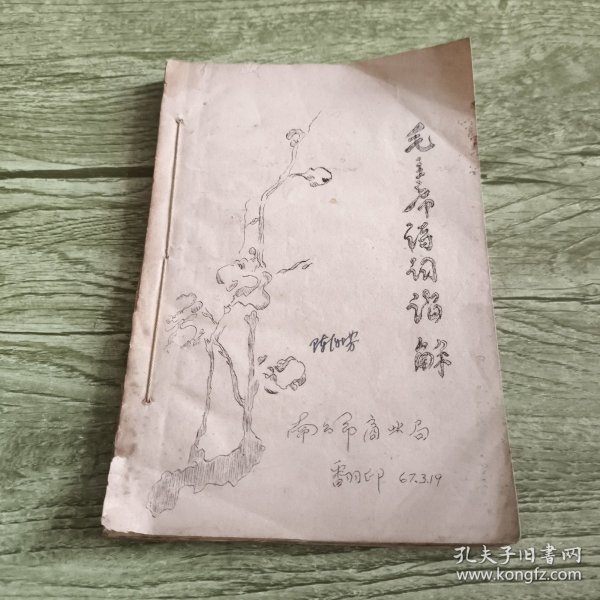 毛主席诗词诠解
南公市商业局
翻印 67.3.19
孔夫子旧书网
www.kongfz.com